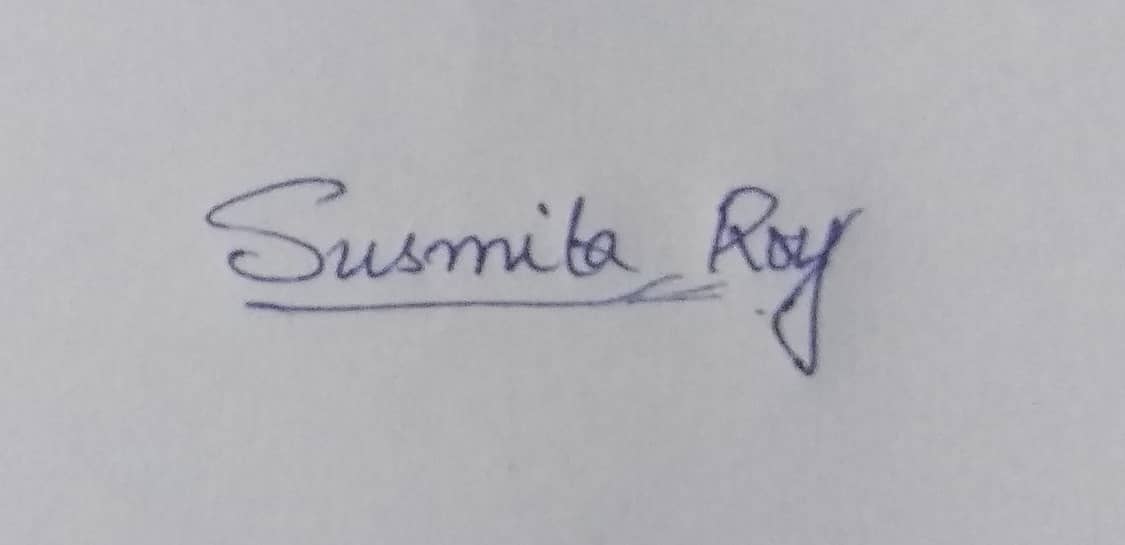 Susmita Roy